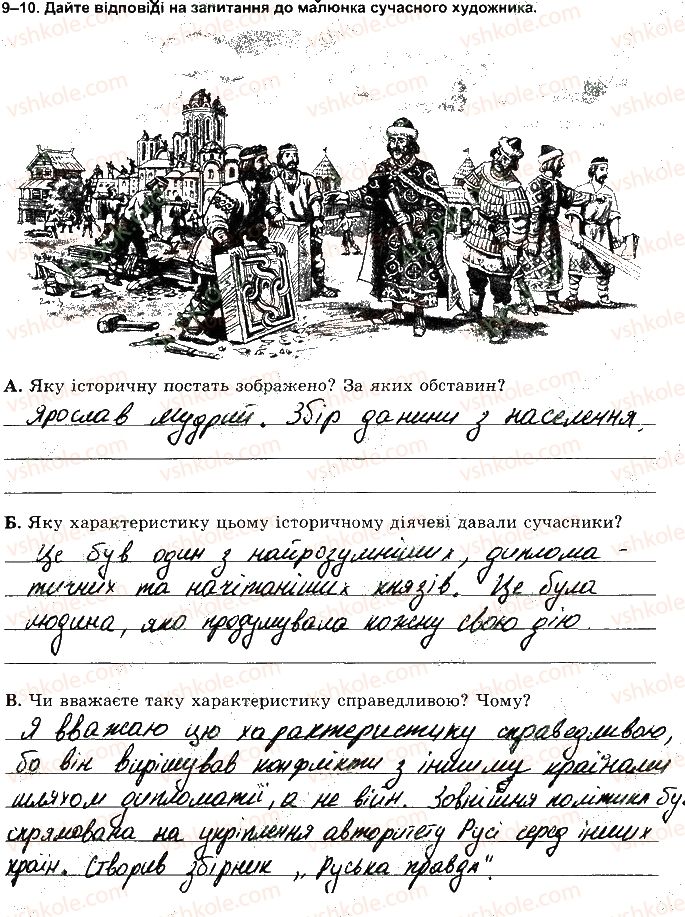 9–10. Дайте відповіді на запитання до малюнка сучасного художника.
А. Яку історичну постать зображено? За яких обставин?
Ярослав Мудрий. Збір данини з населення.
Б. Яку характеристику цьому історичному діячеві давали сучасники?
Це був один з найрозумніших, диплома-
тичних та начітаніших князів. Це була
людина, яка продумувала кожну свою дію.
В. Чи вважаєте таку характеристику справедливою? Чому?
Я вважаю цю характеристику справедливою,
бо він вирішував конфлікти з іншими країнами
шляхом дипломатії, а не війн. Зовнішня політика бу
спрямована на укріплення авторитету Русі серед інших
країн. Створив збірник „Руська правда".